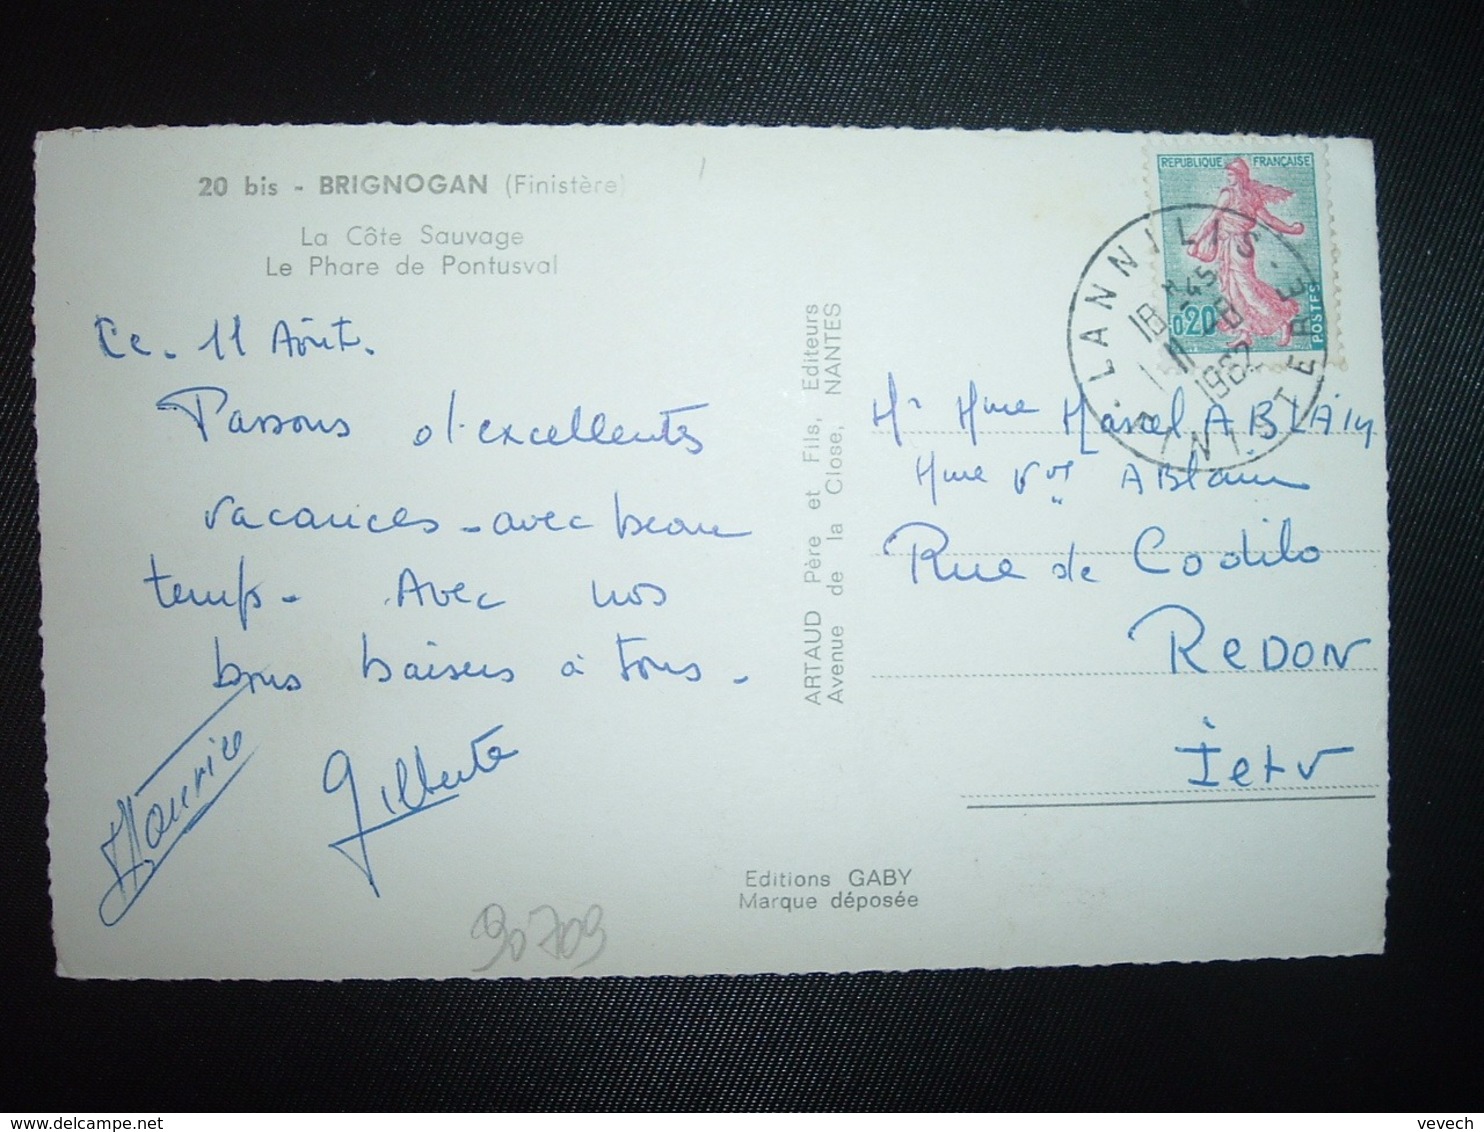 20 bis - BRIGNOGAN (Finistère)
La Côte Sauvage
Le Phare de Pontusval
Ce. 11 Août.
Passons d'excellentes
vacances - avec beau
temps - Avec nos
bons baisers à tous -
Maurice
Gilberte
ARTAUD Père et Fils, Editeurs
Avenue de la Close, NANTES
REPUBLIQUE FRANÇAISE
0,20
POSTES
LANNILIS
18 H 45
11 - 8
1963
FINISTERE
Mr Mme Marcel ABLAIN
Mme Vve ABlain
Rue de Codilo
REDON
I et V
Editions GABY
Marque déposée
90709
delcampe.net
vevech